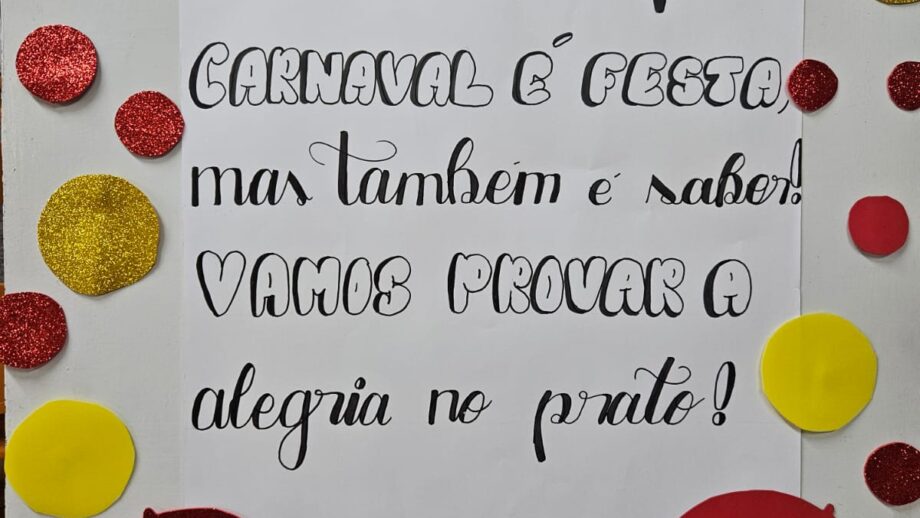 CARNAVAL É FESTA,
mas também é sabor!
VAMOS PROVAR A
alegria no prato!